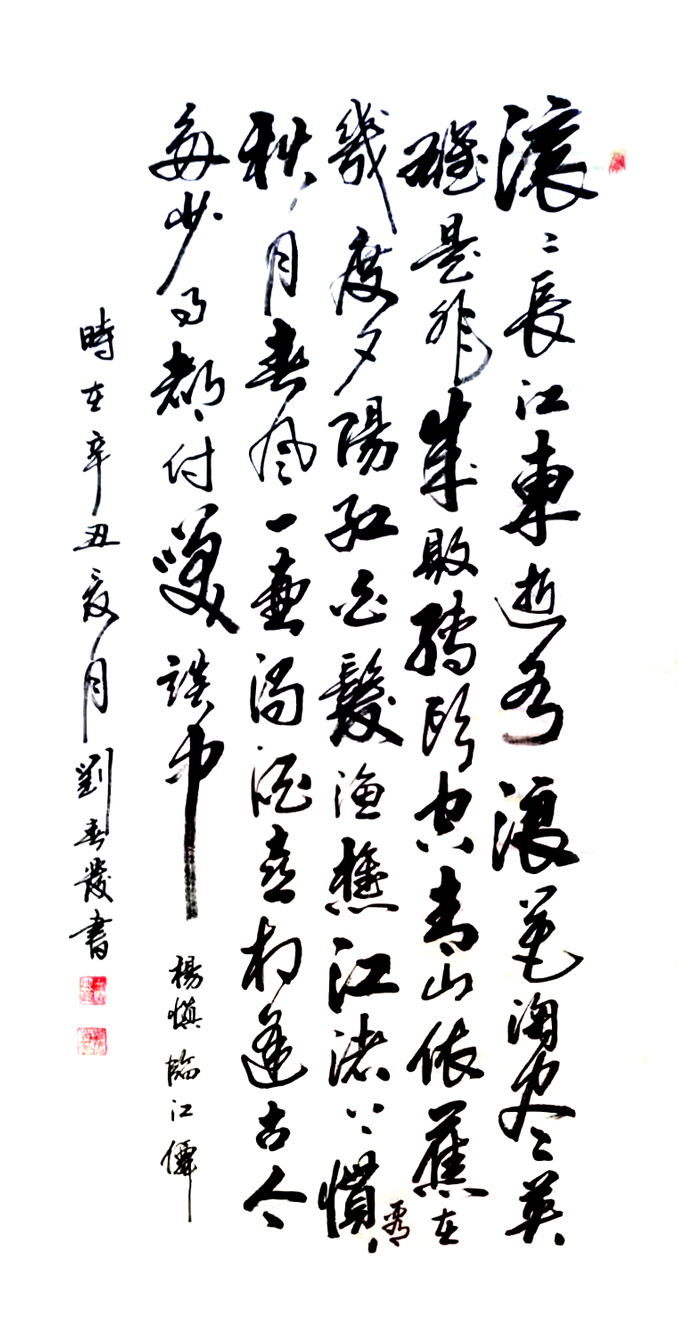 滚〻長江東逝水浪花淘尽英
雄是非成敗轉頭空青山依舊在
幾度夕陽紅白髮漁樵江渚上慣看
秋月春風一壺濁酒喜相逢古今
多少事都付笑談中 楊慎臨江僊
時在辛丑夏月劉春發書